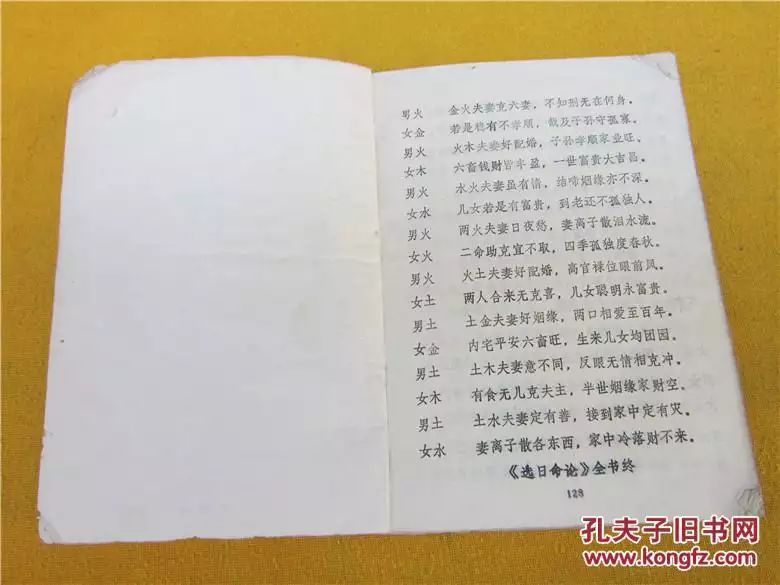 男火 金火夫妻克六妻，不知刑无在何身。
女金 若是稳有不孝顺，骸及子孙守孤寡。
男火 火木夫妻好配婚，子孙孝顺家业旺。
女木 六畜钱财皆丰盈，一世富贵大吉昌。
男火 水火夫妻虽有情，结啼姻缘亦不深。
女水 儿女若是有富贵，到老还不孤独人。
男火 两火夫妻日夜愁，妻离子散泪水流。
女火 二命助克宜不取，四季孤独度春秋。
男火 火土夫妻好配婚，高官禄位眼前风。
女土 两人合来无克喜，儿女聪明永富贵。
男土 土金夫妻好姻缘，两口相爱至百年。
女金 内宅平安六畜旺，生来儿女均团园。
男土 土木夫妻意不同，反眼无情相克冲。
女木 有食无儿克夫主，半世姻缘家财空。
男土 土水夫妻定有善，接到家中定有灾。
女水 妻离子散各东西，家中冷落财不来。
《选日命论》全书终
128
孔夫子旧书网
www.kongfz.com